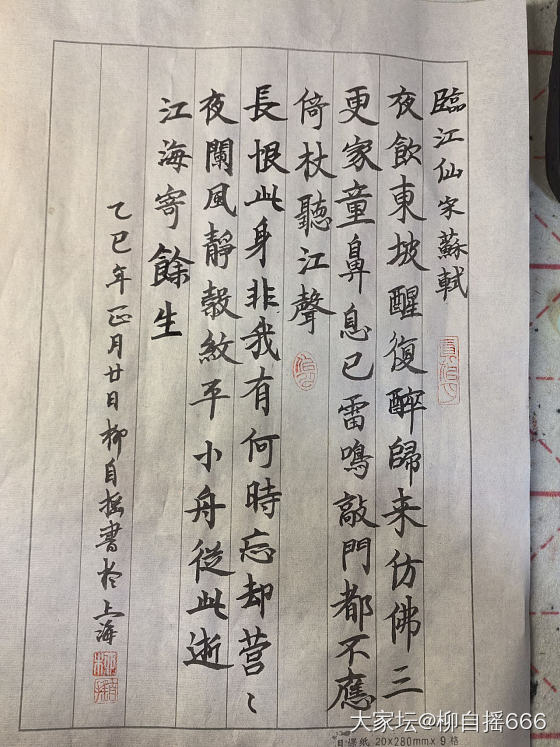 臨江仙 宋 蘇軾
夜飲東坡醒復醉歸来仿佛三
更家童鼻息已雷鳴敲門都不應
倚杖聽江聲
長恨此身非我有何時忘却营〻
夜闌風靜縠紋平小舟從此逝
江海寄餘生
乙巳年正月廿日柳自摇書於上海
日課紙 20×280mm×9格
大家坛@柳自摇666